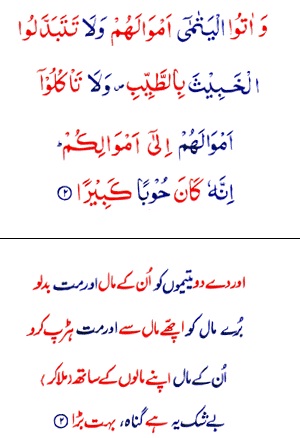 وَ اٰتُوا الْيَتٰمٰٓى اَمْوَالَهُمْ وَلَا تَتَبَدَّلُوا
الْخَبِيْثَ بِالطَّيِّبِ ۪ وَلَا تَاْكُلُوْۤا
اَمْوَالَهُمْ اِلٰٓى اَمْوَالِكُمْ ؕ
اِنَّهٗ كَانَ حُوْبًا كَبِيْرًا ۝۲
اور دے دو یتیموں کو اُن کے مال اور مت بدلو
بُرے مال کو اچھے مال سے اور مت ہڑپ کرو
اُن کے مال اپنے مالوں کے ساتھ (ملا کر)
بے شک یہ ہے گناہ، بہت بڑا ۝۲